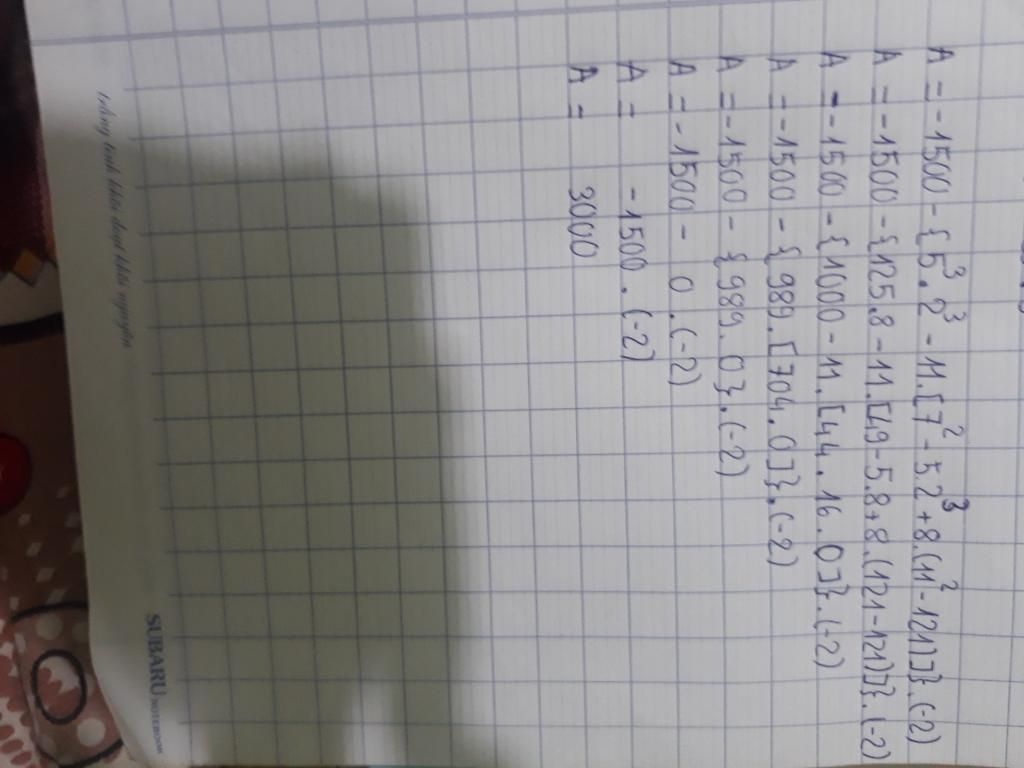 A = -1500 - {5³.2³ - 11.[7² - 5.2³ + 8.(11² - 121)]}.(-2)
A = -1500 - {125.8 - 11.[49 - 5.8 + 8.(121 - 121)]}.(-2)
A = -1500 - {1000 - 11.[44.16.0]}.(-2)
A = -1500 - {989.[704.0]}.(-2)
A = -1500 - {989.0}.(-2)
A = -1500 - 0.(-2)
A = -1500.(-2)
A = 3000
trăng tinh khôi đẹp khôi nguyên
SUBARU NOTEBOOK